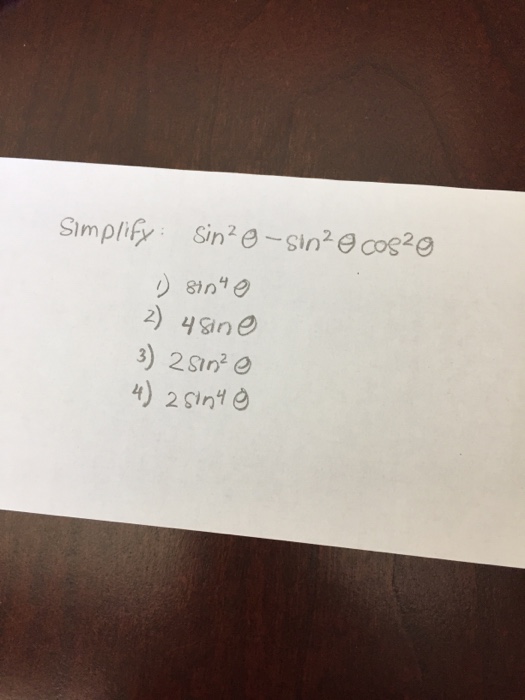 Simplify: sin²θ - sin²θ cos²θ
1) sin⁴θ
2) 4 sinθ
3) 2 sin²θ
4) 2 sin⁴θ